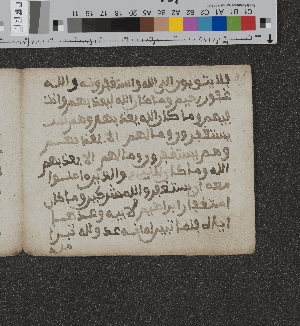 افلا يتوبون الى الله ويستغفرونه والله
غفور رحيم وما كان الله ليعذبهم وانت
فيهم وما كان الله معذبهم وهم
يستغفرون وما لهم الا يعذبهم
وهم يستغفرون وما لهم الا يعذبهم
الله وما كان والذين امنوا
معه ان يستغفروا للمشركين وما كان
استغفار ابراهيم لابيه وعدها
اياه فلما تبين له انه عدو لله تبرا
منه